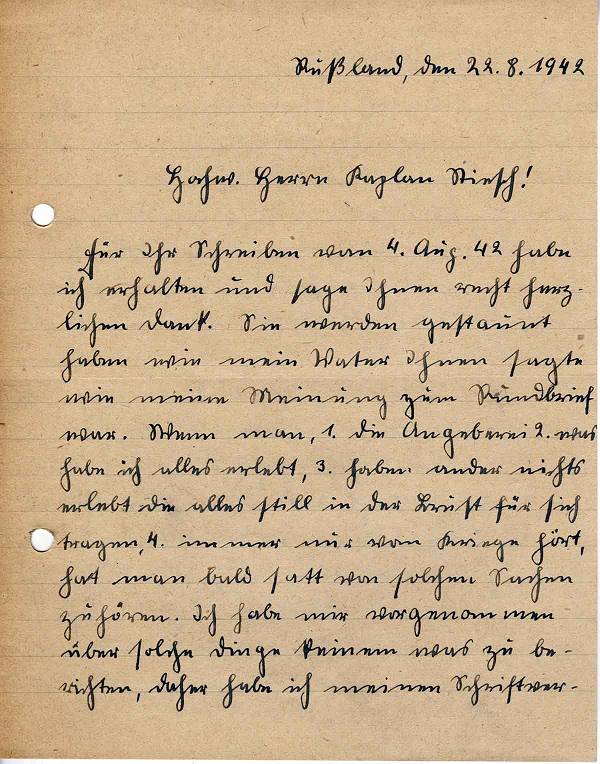 Rußland, den 22. 8. 1942
Hochw. Herrn Kaplan Stiesch!
Für Ihr Schreiben vom 4. Aug. 42 habe
ich erhalten und sage Ihnen recht herz-
lichen Dank. Sie werden gestaunt
haben wie mein Vater Ihnen sagte
wie meine Meinung zum Rundbrief
war. Wenn man, 1. die Angeberei 2. was
habe ich alles erlebt, 3. haben ander nichts
erlebt die alles still in der Brust für sich
tragen, 4. immer nur vom Kriege hört,
hat man bald satt von solchen Sachen
zuhören. Ich habe mir vorgenommen
über solche Dinge keinem was zu be-
richten, daher habe ich meinen Schriftver-